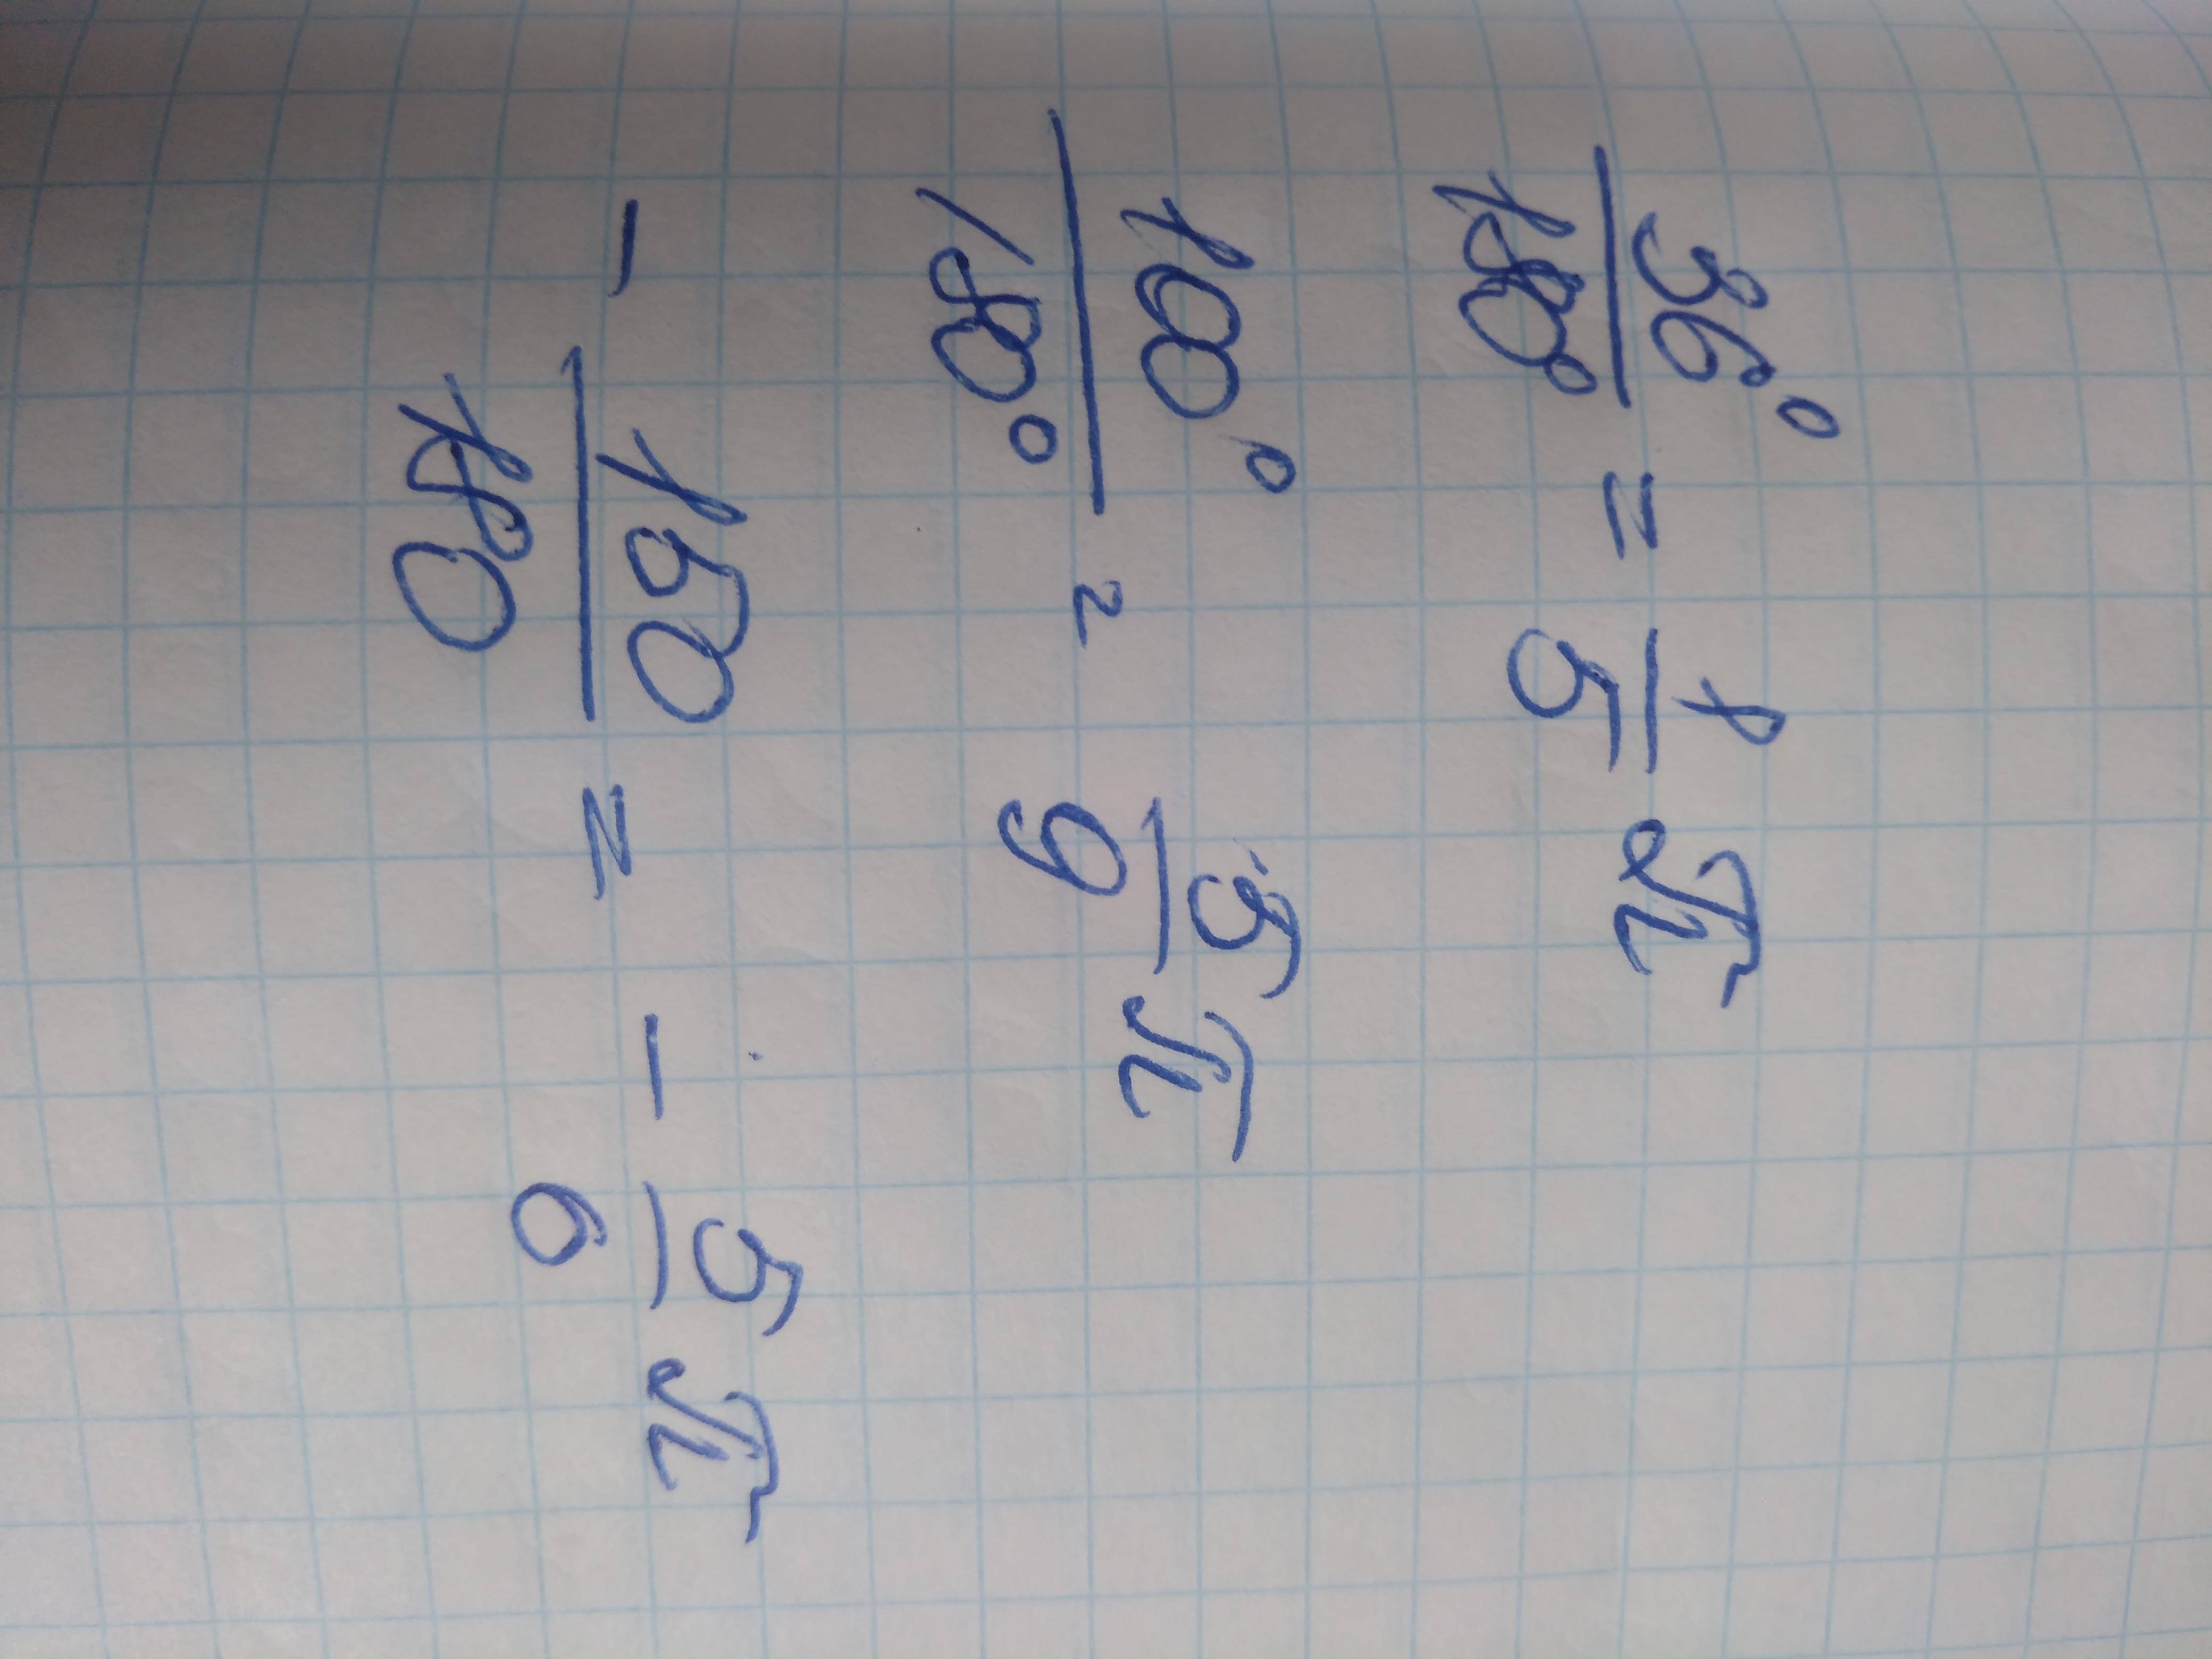 36°/180° = 1/5 π
100°/180° = 5/9 π
- 150/180 = - 5/6 π